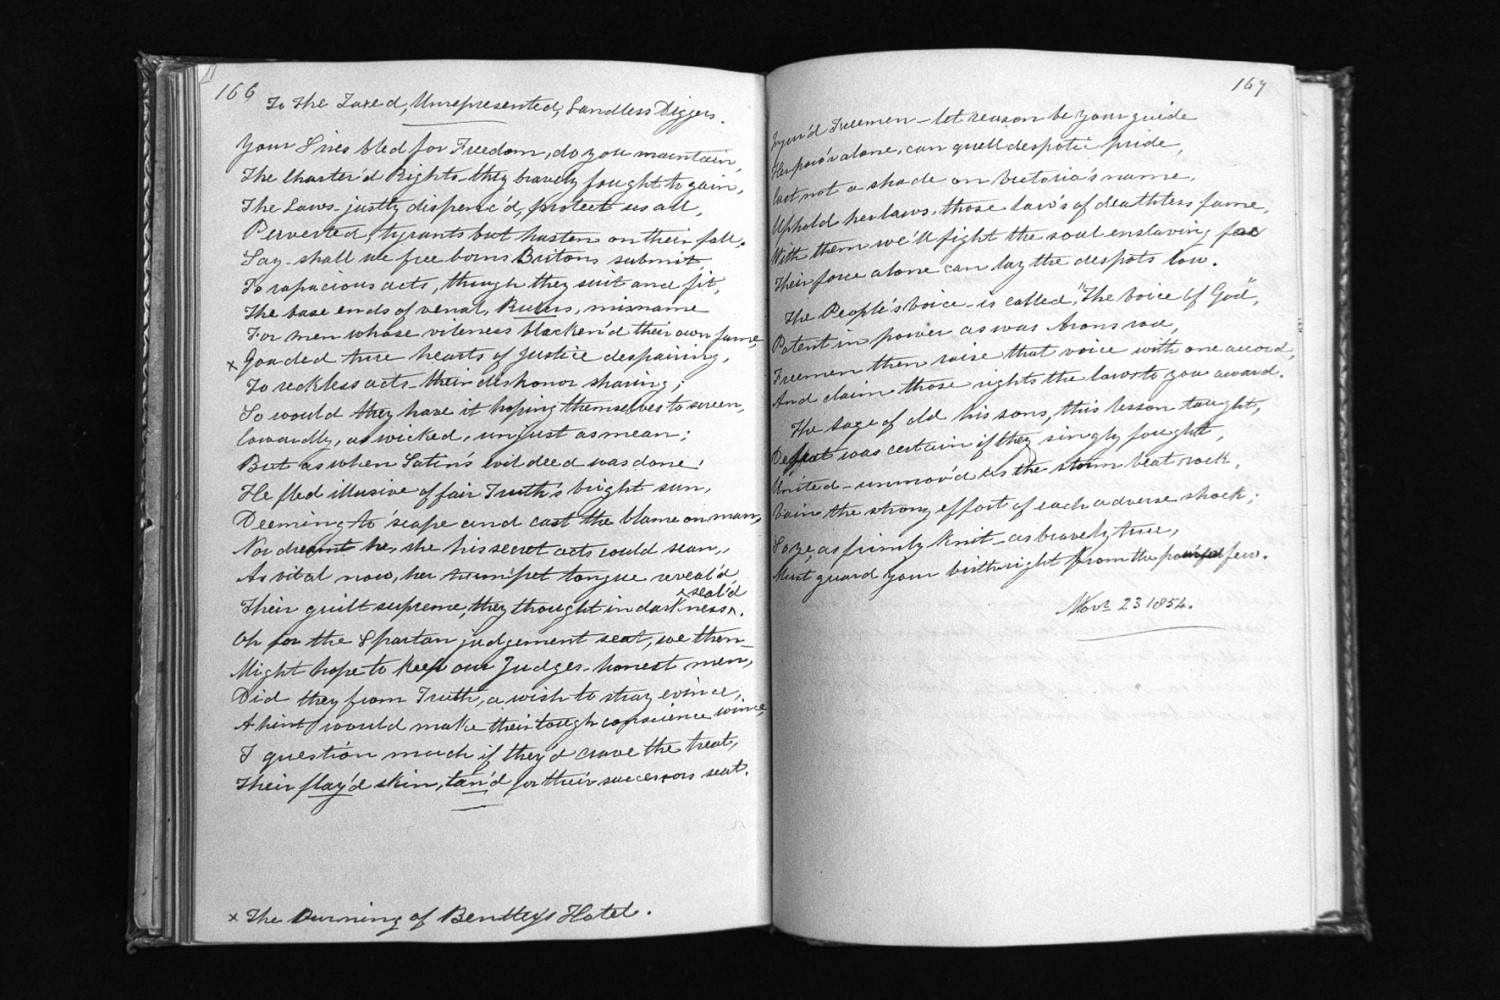 166
To the Taxed, Unrepresented, Landless Diggers.
Your Sires bled for Freedom, do you maintain,
The Charter'd Rights they bravely fought to gain,
The Laws justly dispenc'd, protect us all,
Perverted, tyrants but hasten on their fall.
Say shall we free borns Britons submit
To rapacious acts, though they suit and fit,
The base ends of venal, Rulers, misname
For men whose vileness blacken'd their own fame,
x Goaded true hearts of justice despairing,
To reckless acts their dishonor sharing;
So would they have it hoping themselves to screen,
Cowardly, as wicked, unjust as mean;
But as when Satin's evil deed was done;
He fled illusive of fair Truth's bright sun,
Deeming to 'scape and cast the blame on man,
Nor dreamt he, she his secret acts could scan,
As vital now, her trumpet tongue reveal'd
Their guilt supreme, they thought in darkness ^ seal'd.
Oh for the Spartan judgement seat, we then
Might hope to keep our Judges honest men,
Did they from Truth, a wish to stray evince,
A hint would make their tough conscience wince,
I question much if they'd crave the treat,
Their flay'd skin, tan'd for their succerors seat.
x The Burning of Bentley's Hotel.
167
Injur'd Freemen – let reason be your guide
Her pow'r alone, can quell despotic pride,
Cast not a shade on Victoria's name,
Uphold her laws, those law's of deathless fame,
With them we'll fight the soul enslaving foe
Their force alone can lay the despots low.
The People's voice is called, "The voice of God",
Potent in power as was Arons rod,
Freemen then raise that voice with one accord,
And claim those rights the laws to you award.
The sage of old his sons, this lesson taught,
Defeat was certain if they singly fought,
United – unmov'd as the storm beat rock,
Vain the strong effort of each adverse shock;
So ye, as firmly knit – as bravely true,
Must guard your birthright from the few.
Novr 23 1854.